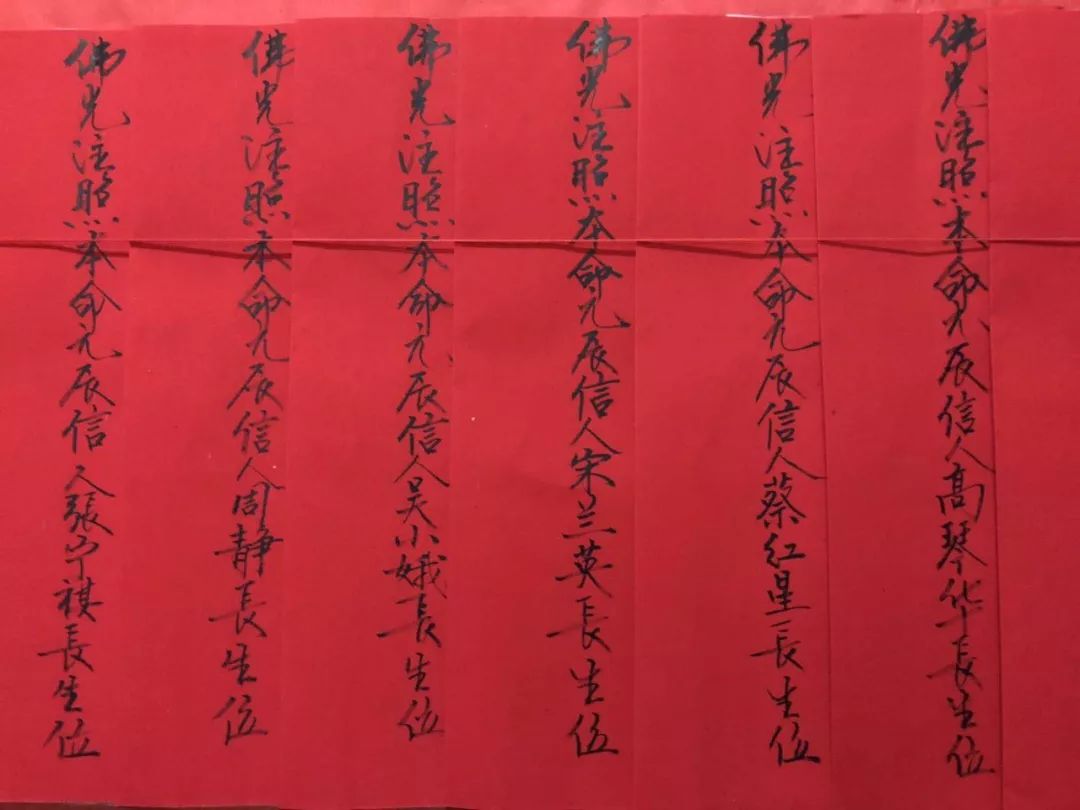 佛光注照本命元辰信人高琴华長生位
佛光注照本命元辰信人蔡红星長生位
佛光注照本命元辰信人宋兰英長生位
佛光注照本命元辰信人吴小娥長生位
佛光注照本命元辰信人周静長生位
佛光注照本命元辰信人張宁祺長生位